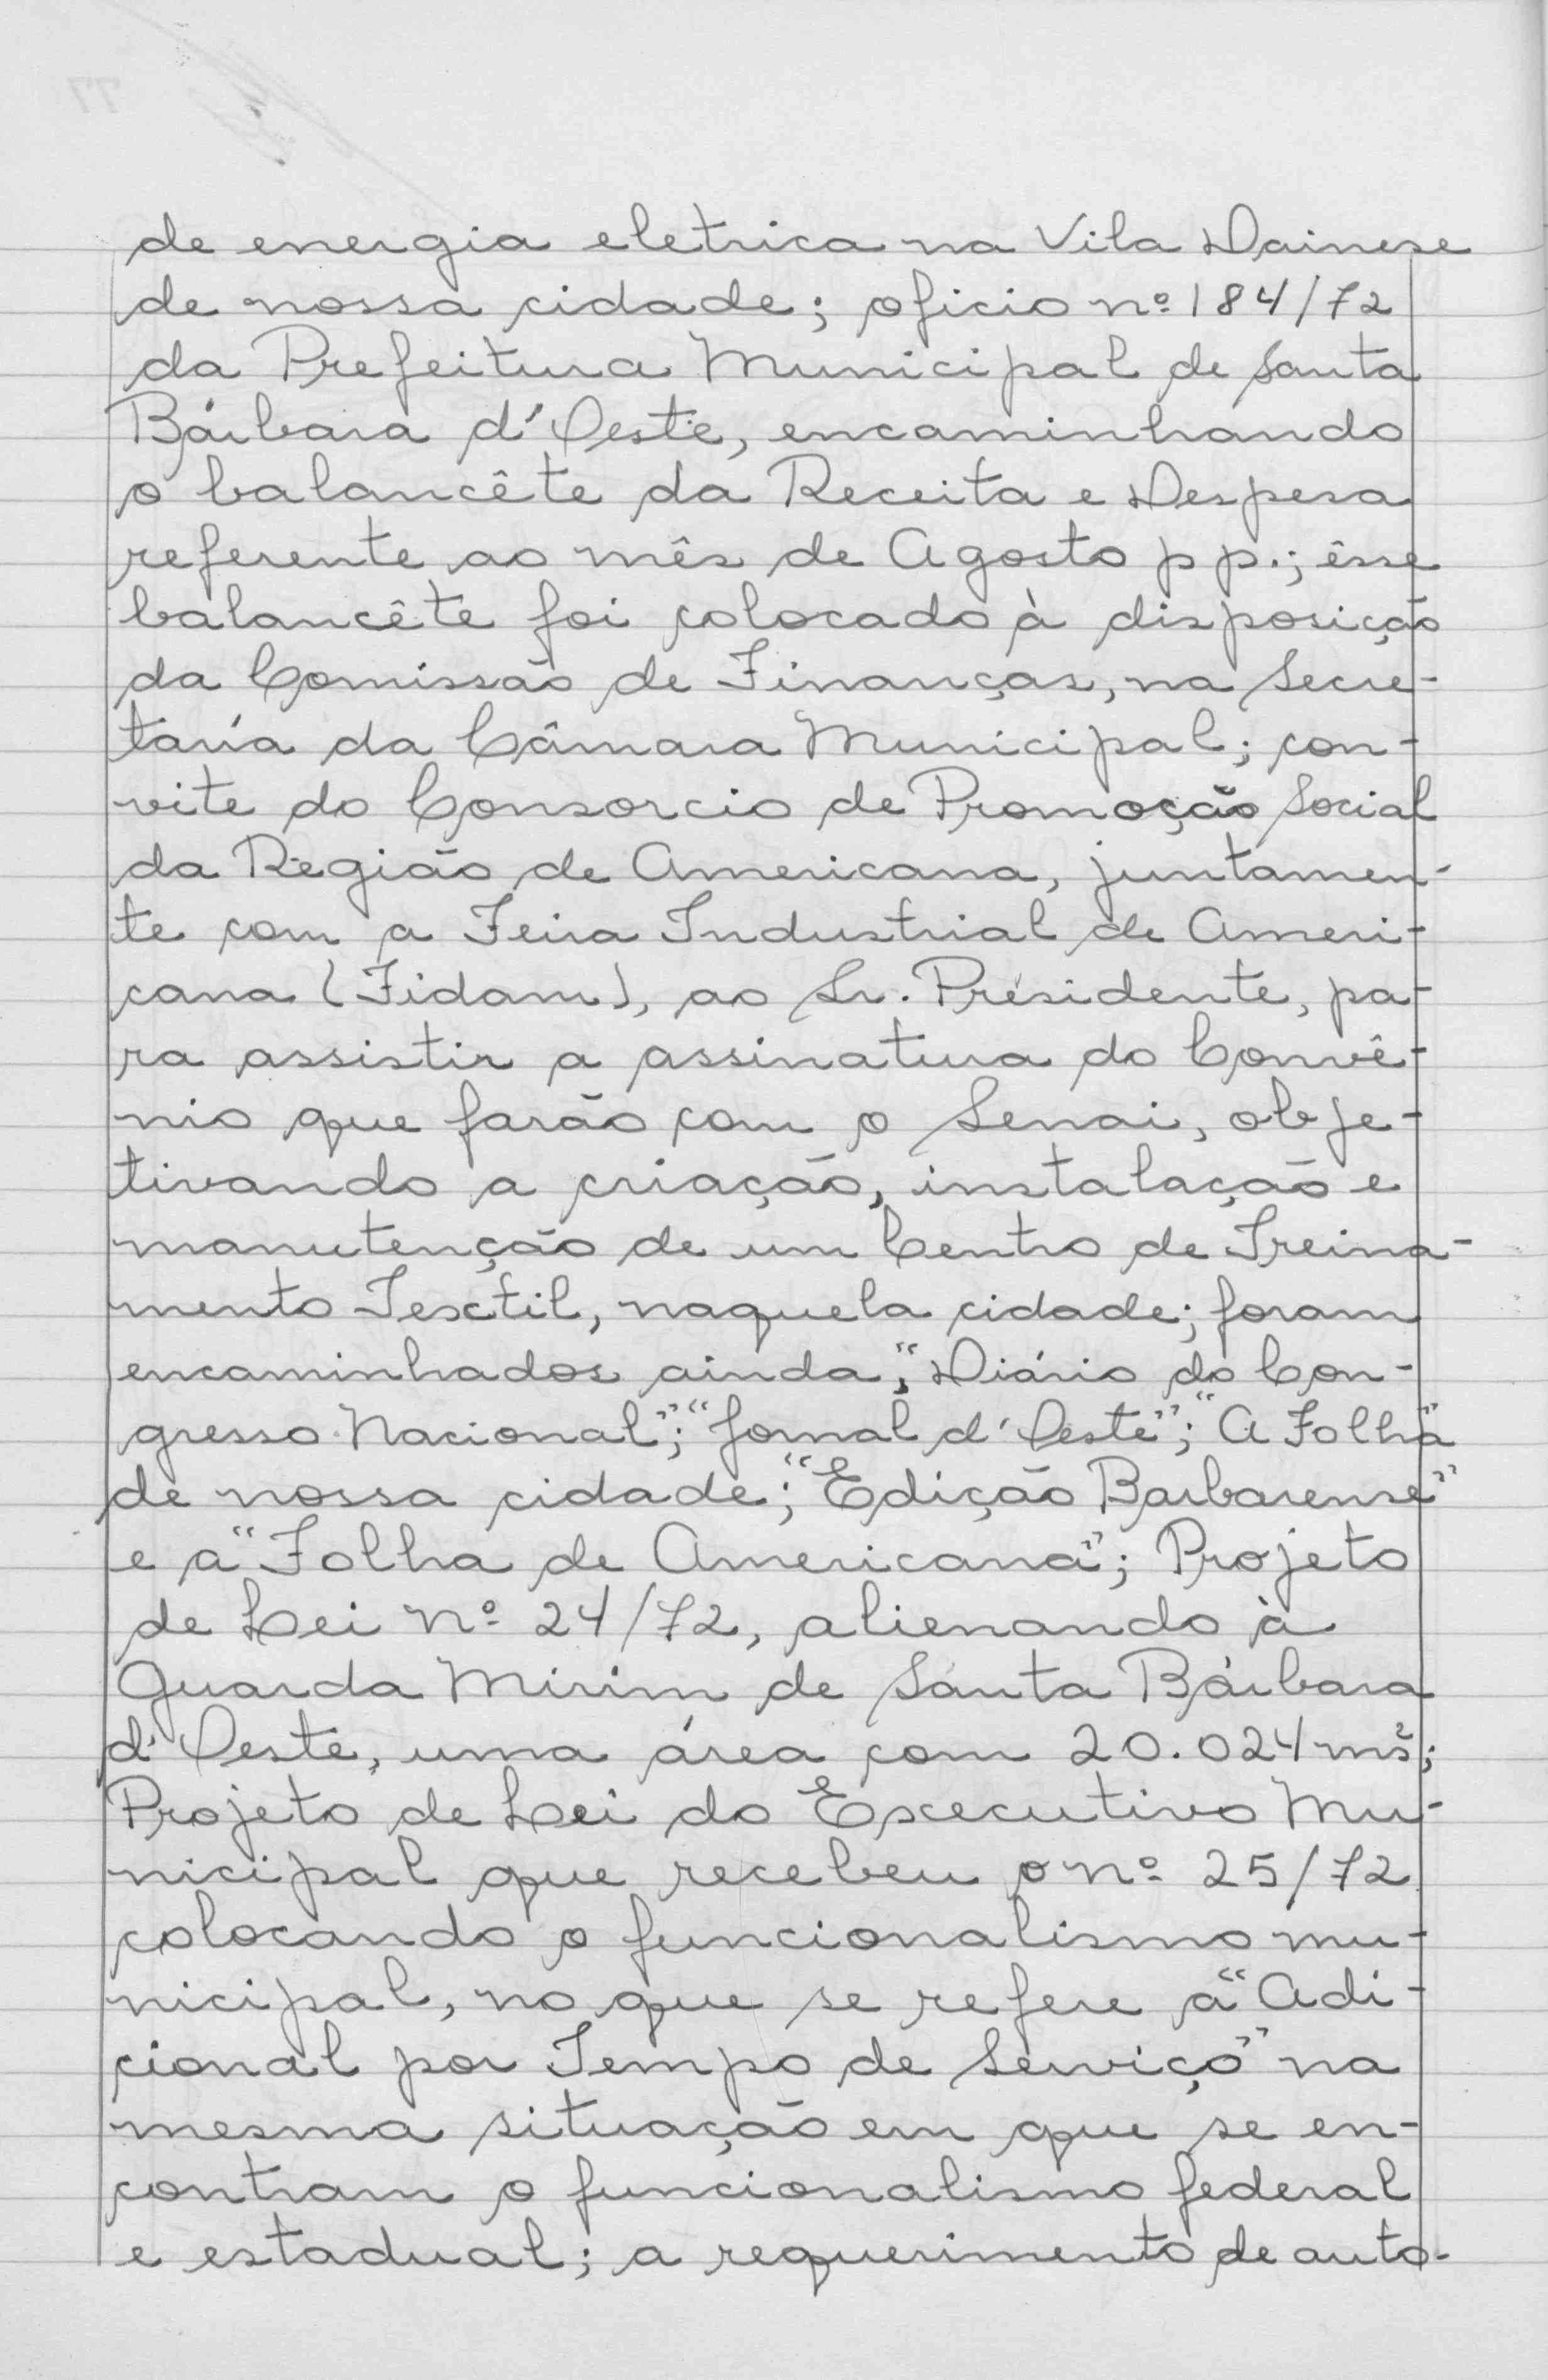 de energia eletrica na Vila Dainese
de nossa cidade; oficio nº 184/72
da Prefeitura Municipal de Santa
Bárbara d'Oeste, encaminhando
o balancête da Receita e Despesa
referente ao mês de Agosto p p.; êsse
balancête foi colocado à disposição
da Comissão de Finanças, na Secre-
taria da Câmara Municipal; con-
vite do Consorcio de Promoção Social
da Região de Americana, juntamen-
te com a Feira Industrial de Ameri-
cana (Fidam), ao Sr. Presidente, pa-
ra assistir a assinatura do Convê-
nio que farão com o Senai, obje-
tivando a criação, instalação e
manutenção de um Centro de Treina-
mento Textil, naquela cidade; foram
encaminhados ainda, "Diário do Con-
gresso Nacional"; "Jornal d'Oeste"; "A Folha"
de nossa cidade; "Edição Barbarense"
e a "Folha de Americana"; Projeto
de Lei nº 24/72, alienando à
Guarda Mirim de Santa Bárbara
d'Oeste, uma área com 20.024 ms²;
Projeto de Lei do Executivo Mu-
nicipal que recebeu o nº 25/72
colocando o funcionalismo mu-
nicipal, no que se refere a "Adi-
cional por Tempo de Serviço" na
mesma situação em que se en-
contram o funcionalismo federal
e estadual; a requerimento de auto-